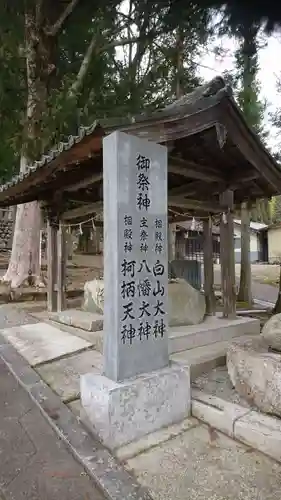 御祭神
相殿神 白山大神
主祭神 八幡大神
相殿神 柯柄天神